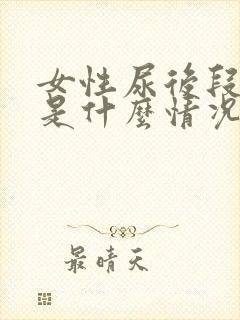 女性尿後段
是什麼情況
最晴天